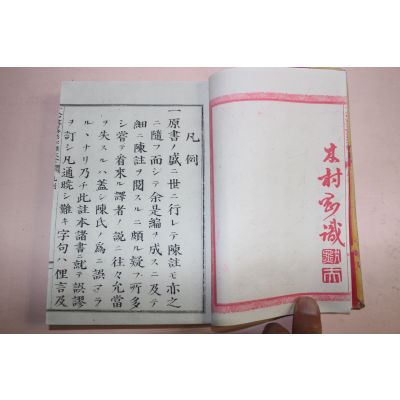 木村 識
凡例
一原書ノ盛ニ世ニ行レテ陳註モ亦之
ニ隨フ而シテ余是編ヲ成スニ及テ
細ニ陳註ヲ閱スルニ頗ル疑フ所多
シ嘗テ看來ル譯者ノ說ニ往々允當
ヲ失スルハ蓋シ陳氏ノ爲ニ誤マラ
ル丶ナリ乃チ此註本諸書ニ就テ誤謬
ヲ訂シ凡通曉シ難キ字句ハ俚言及